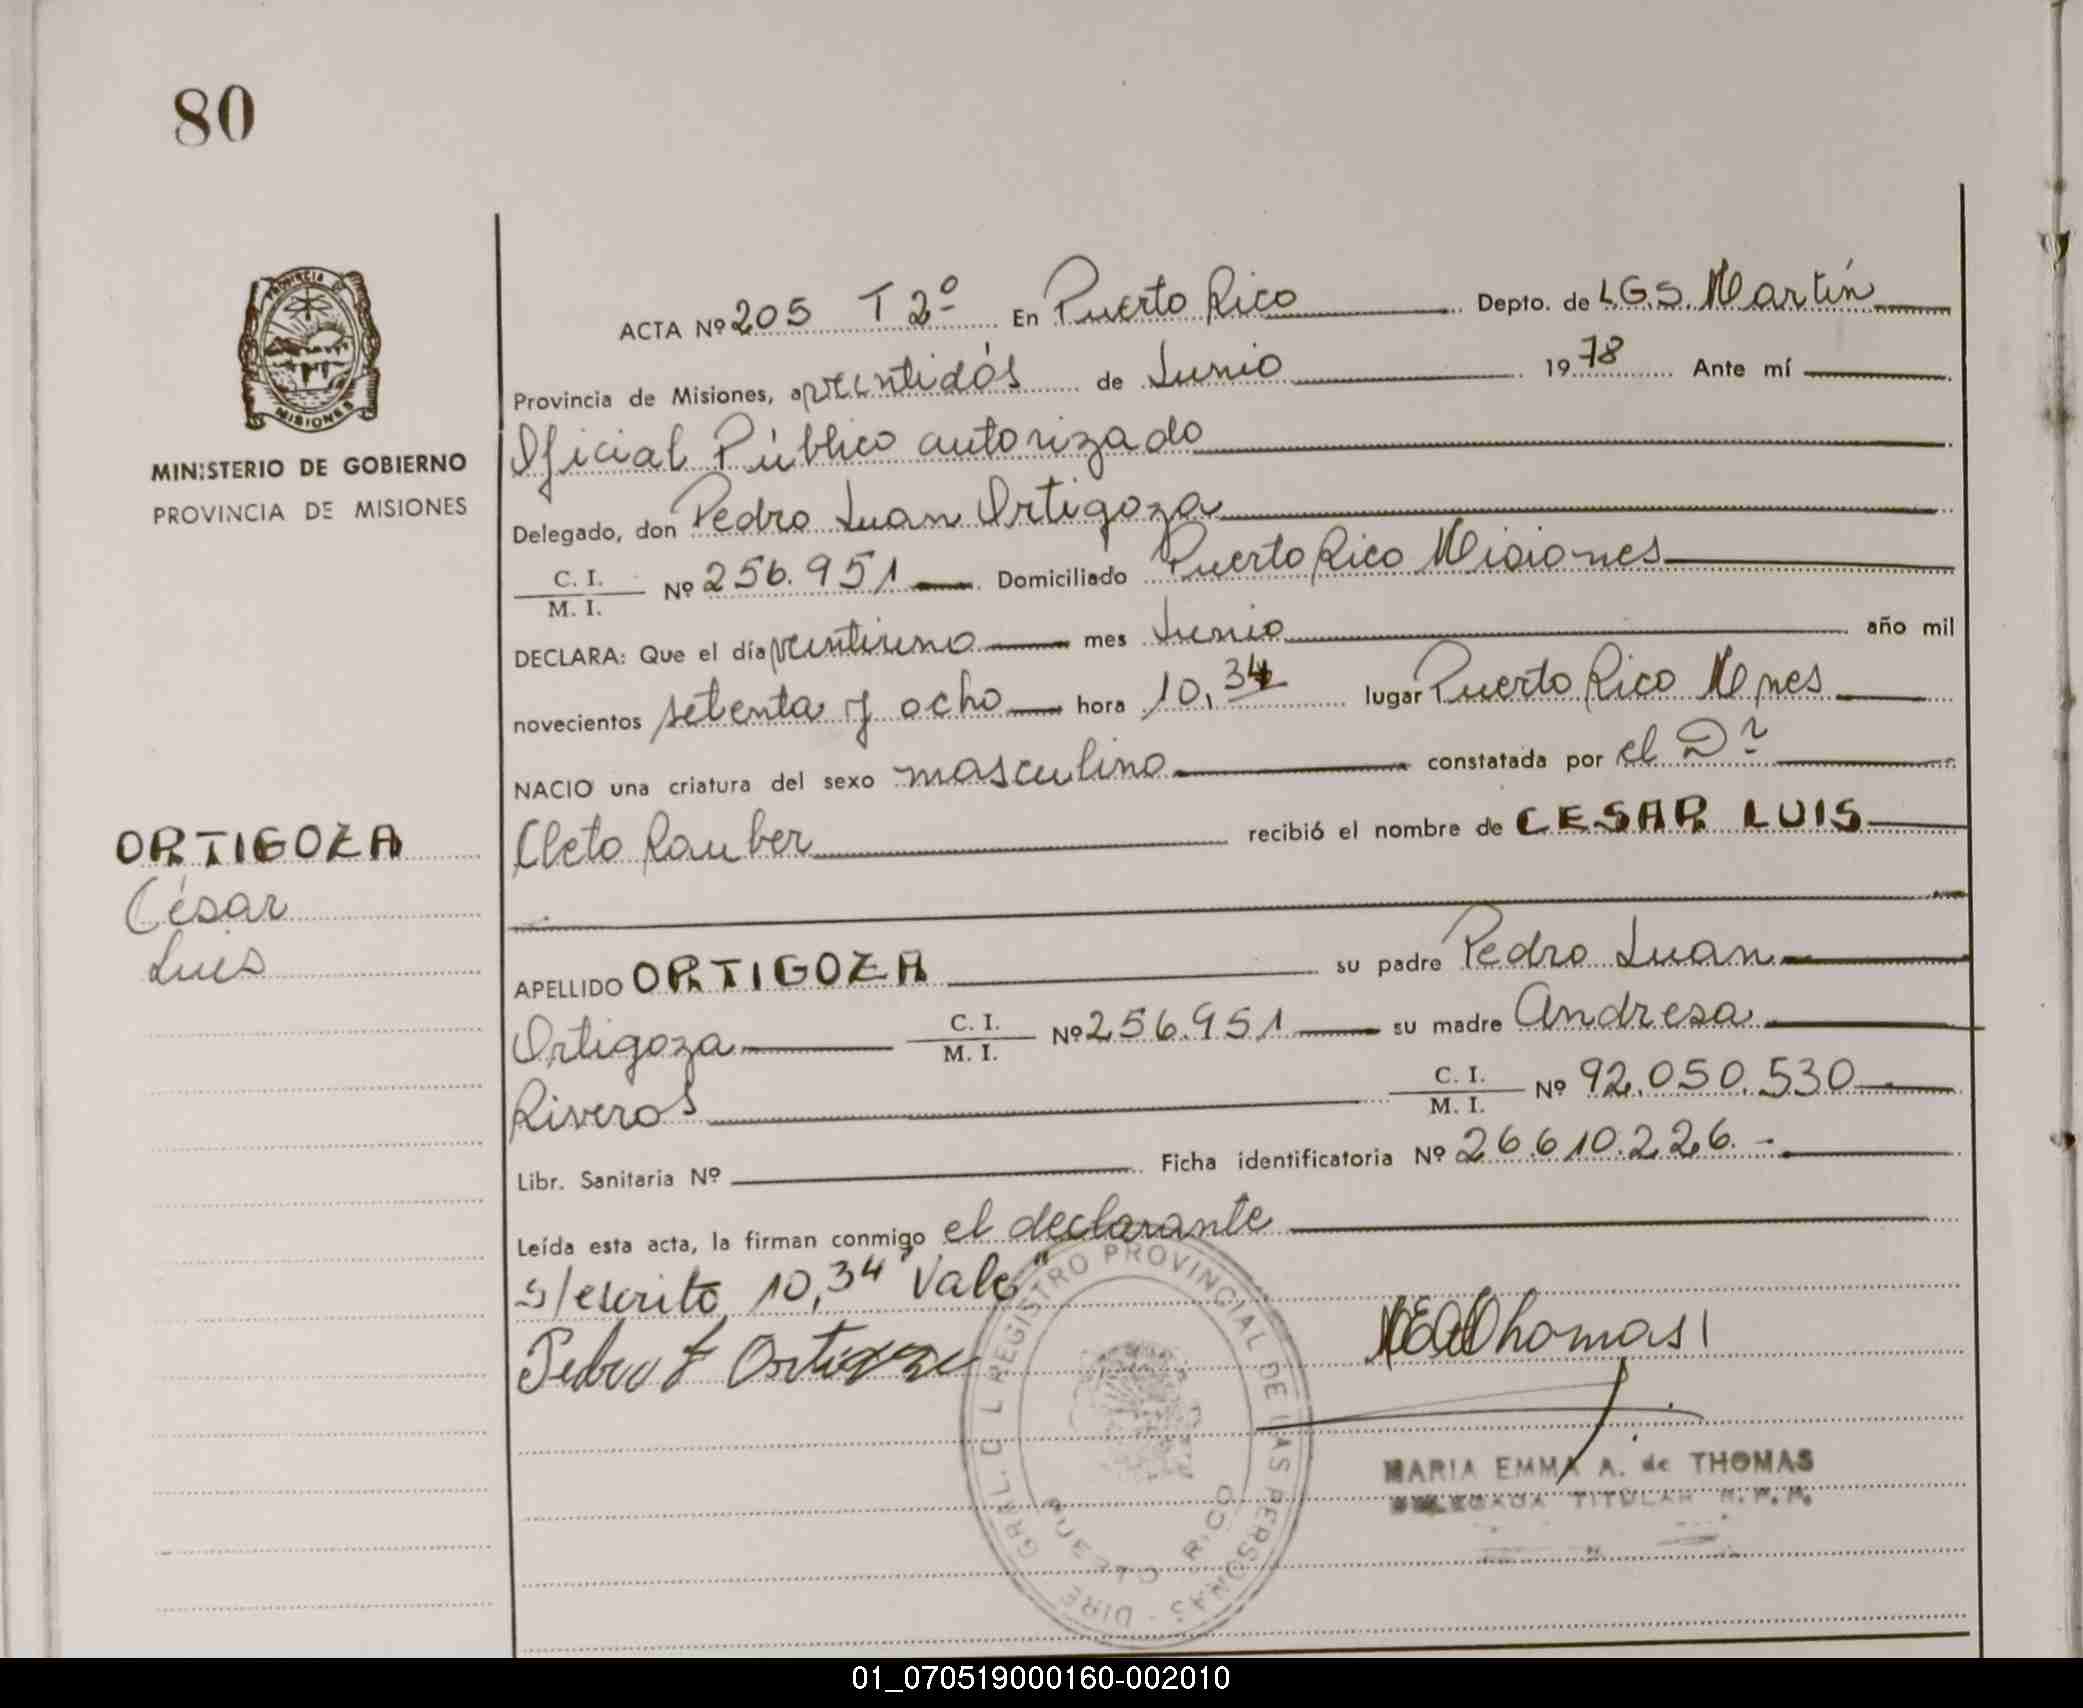 80
PROVINCIA DE
MISIONES
MINISTERIO DE GOBIERNO
PROVINCIA DE MISIONES
ORTIGOZA
César
Luis
ACTA Nº 205 T 2º En Puerto Rico Depto. de L.G.S. Martín
Provincia de Misiones, a veintidós de Junio 1978 Ante mí
Oficial Público autorizado
Delegado, don Pedro Juan Ortigoza
C. I. / M. I. Nº 256.951 Domiciliado Puerto Rico Misiones
DECLARA: Que el día veintiuno mes Junio año mil
novecientos setenta y ocho hora 10,34 lugar Puerto Rico Mnes
NACIO una criatura del sexo masculino constatada por el Dr
Cleto Rauber recibió el nombre de CESAR LUIS
APELLIDO ORTIGOZA su padre Pedro Juan
Ortigoza C. I. / M. I. Nº 256.951 su madre Andresa
Riveros C. I. / M. I. Nº 92.050.530
Libr. Sanitaria Nº Ficha identificatoria Nº 26.610.226.-
Leída esta acta, la firman conmigo el declarante
S/escrito 10,34 "Vale"
Pedro J Ortigoza
MEAdThomas
DIRE. GRAL. DEL REGISTRO PROVINCIAL DE LAS PERSONAS
PUERTO RICO
MARIA EMMA A. de THOMAS
DELEGADA TITULAR R. P. P.
01_070519000160-002010